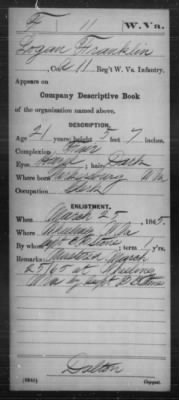 F 11 W. Va.
Logan Franklin
Co. 11 Reg't W. Va. Infantry.
Appears on
Company Descriptive Book
of the organization named above.
DESCRIPTION.
Age 21 years; height 5 feet 7 inches.
Complexion Fair
Eyes ; hair Dark
Where born W Va
Occupation Clerk
ENLISTMENT.
When March 25, 1865.
Where Wheeling W Va
By whom Capt ; term 1 y'rs.
Remarks: Mustered March
25/65 at Wheeling
W Va by Capt
Dalton
Copyist.